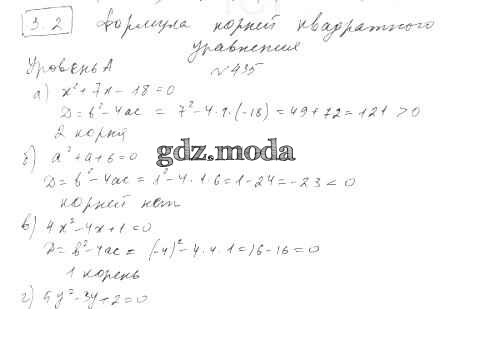 3.2 Формула корней квадратного
уравнения
Уровень А
№435
а) x² + 7x - 18 = 0
D = b² - 4ac = 7² - 4·1·(-18) = 49 + 72 = 121 > 0
2 корня
gdz.moda
б) a² + a + 6 = 0
D = b² - 4ac = 1² - 4·1·6 = 1 - 24 = -23 < 0
корней нет
в) 4x² - 4x + 1 = 0
D = b² - 4ac = (-4)² - 4·4·1 = 16 - 16 = 0
1 корень
г) 5y² - 3y + 2 = 0